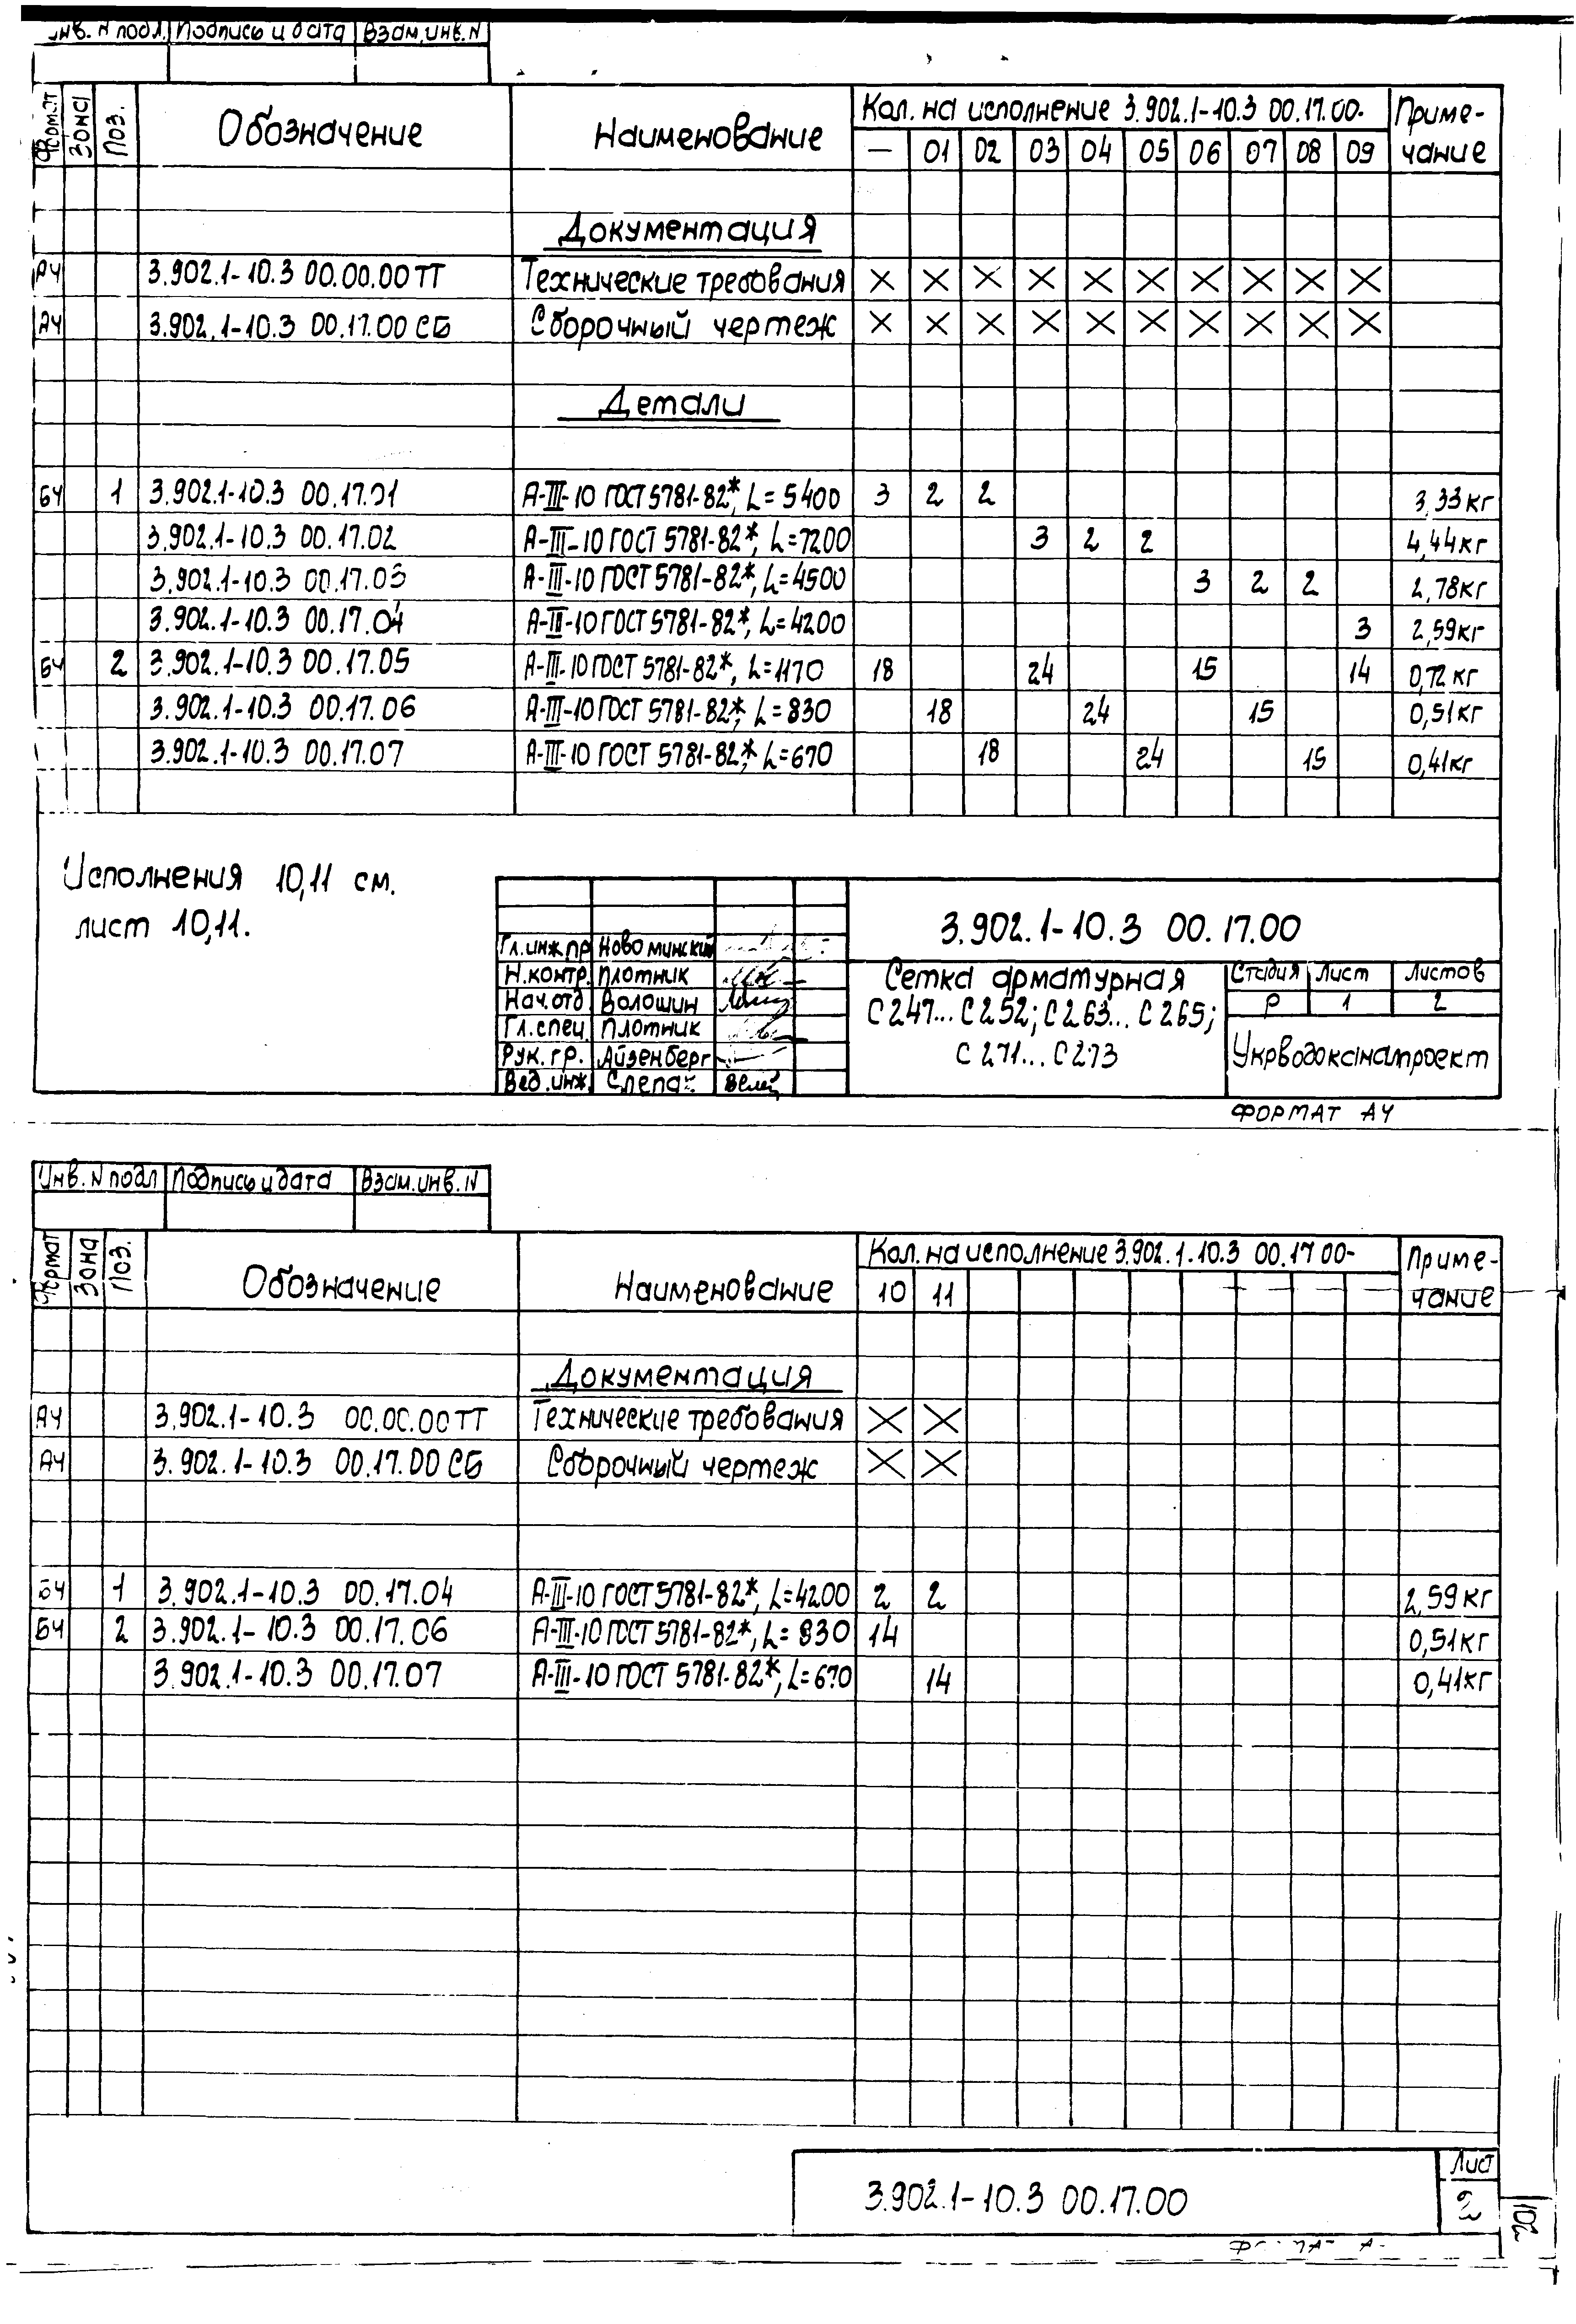 Инв. N подл. Подпись и дата Взам. инв. N
Формат Зона Поз. Обозначение Наименование Кол. на исполнение 3.902.1-10.3 00.17.00- Приме-чание
— 01 02 03 04 05 06 07 08 09
Документация
А4 3.902.1-10.3 00.00.00ТТ Технические требования X X X X X X X X X X
А4 3.902.1-10.3 00.17.00 СБ Сборочный чертеж X X X X X X X X X X
Детали
БЧ 1 3.902.1-10.3 00.17.01 А-III-10 ГОСТ 5781-82*, L=5400 3 2 2 3,33кг
3.902.1-10.3 00.17.02 А-III-10 ГОСТ 5781-82*, L=7200 3 2 2 4,44кг
3.902.1-10.3 00.17.03 А-III-10 ГОСТ 5781-82*, L=4500 3 2 2 2,78кг
3.902.1-10.3 00.17.04 А-III-10 ГОСТ 5781-82*, L=4200 3 2,59кг
БЧ 2 3.902.1-10.3 00.17.05 А-III-10 ГОСТ 5781-82*, L=1170 18 24 15 14 0,72кг
3.902.1-10.3 00.17.06 А-III-10 ГОСТ 5781-82*, L=830 18 24 15 0,51кг
3.902.1-10.3 00.17.07 А-III-10 ГОСТ 5781-82*, L=670 18 24 15 0,41кг
Исполнения 10,11 см.
лист 10,11.
3.902.1-10.3 00.17.00
Гл.инж.пр Новоминский
Н.контр. Плотник
Нач.отд Волошин
Гл.спец Плотник
Рук.гр. Айзенберг
Вед.инж. Слепак
Сетка арматурная
С247...С252; С263...С265;
С271...С273
Стадия Лист Листов
Р 1 2
Укрводоканалпроект
ФОРМАТ А4
Инв. N подл Подпись и дата Взам. инв. N
Формат Зона Поз. Обозначение Наименование Кол. на исполнение 3.902.1-10.3 00.17 00- Приме-чание
10 11
Документация
А4 3.902.1-10.3 00.00.00ТТ Технические требования X X
А4 3.902.1-10.3 00.17.00 СБ Сборочный чертеж X X
БЧ 1 3.902.1-10.3 00.17.04 А-III-10 ГОСТ 5781-82*, L=4200 2 2 2,59кг
БЧ 2 3.902.1-10.3 00.17.06 А-III-10 ГОСТ 5781-82*, L=830 14 0,51кг
3.902.1-10.3 00.17.07 А-III-10 ГОСТ 5781-82*, L=670 14 0,41кг
3.902.1-10.3 00.17.00
Лист
2
102